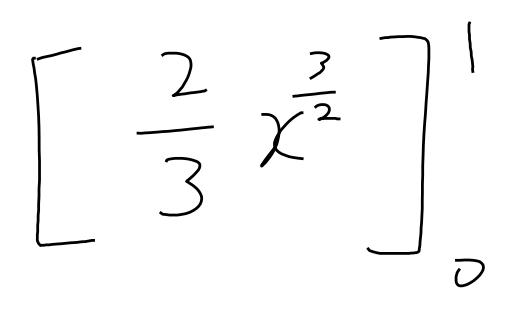 $\left[ \frac{2}{3} x^{\frac{3}{2}} \right]_{0}^{1}$